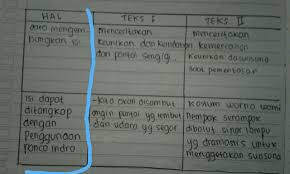 HAL
TEKS I
TEKS II
cara mengem-
bangkan isi
menceritakan
keunikan dan keindahan
dari pantai sengigi.
menceritakan
kemeriahan
keunikan dan suasana
saat pementasan
isi dapat
ditangkap
dengan
penggunaan
panca indra.
- kita akan disambut
angin pantai yg lembut
dan udara yg segar.
kostum warna warni
nampak serempak
dibalut sinar lampu
yg dramatis untuk
menggetarkan suasana